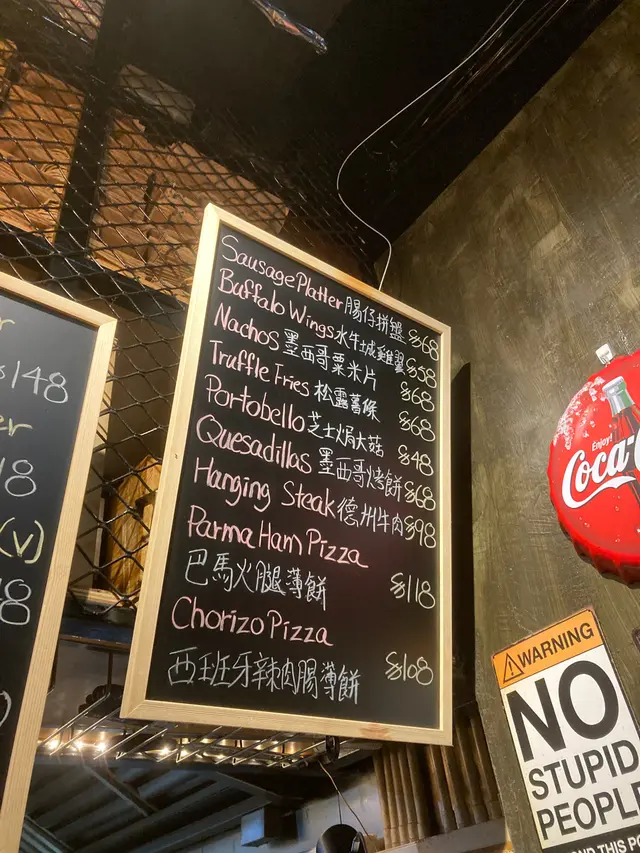 $148
(v)
Sausage Platter 腸仔拼盤 $68
Buffalo Wings 水牛城雞翼 $58
Nachos 墨西哥粟米片 $68
Truffle Fries 松露薯條 $68
Portobello 芝士焗大菇 $48
Quesadillas 墨西哥烤餅 $68
Hanging Steak 德州牛肉 $98
Parma Ham Pizza
巴馬火腿薄餅 $118
Chorizo Pizza
西班牙辣肉腸薄餅 $108
Enjoy!
Coca-C
WARNING
NO
STUPID
PEOPLE